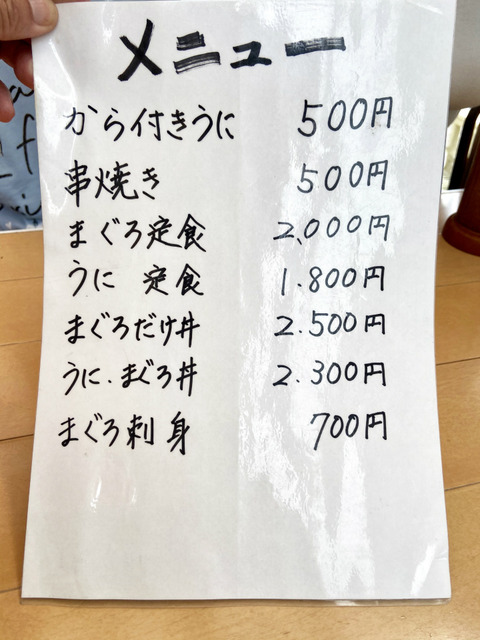 メニュー
から付きうに 500円
串焼き 500円
まぐろ定食 2,000円
うに 定食 1.800円
まぐろだけ丼 2.500円
うに.まぐろ丼 2.300円
まぐろ刺身 700円